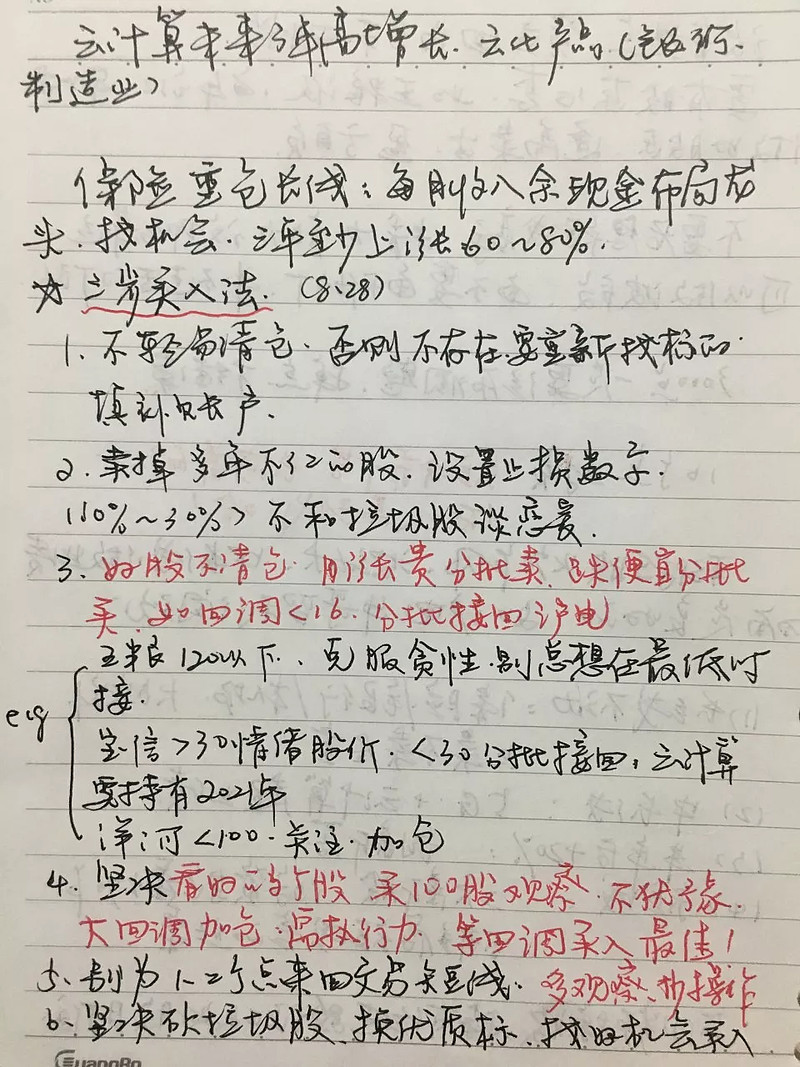 云计算未来3年高增长.云化产品(
制造业)
保险重仓长线:每月收入余现金布局龙
头.找机会.三年至少上涨60~80%.
☆三步买入法.(8.28)
1.不轻易清仓.否则不存在要重新找标的
填补账户.
2.卖掉多年不行的股.设置止损数字.
(10%~30%)不和垃圾股谈恋爱.
3.好股不清仓.用涨贵分批卖.跌便宜分批
买.如回调<16.分批接回沪电
五粮120以下、克服贪性.别总想在最低时
接.
e.g
宝信>30情绪股价.<30分批接回,云计算
要持有2021年
洋河<100.关注.加仓
4.坚决看好的个股 买100股观察.不犹豫.
大回调加仓.需执行力.等回调买入最佳!
5.别为1-2个点来回交易做短线.多观察、少操作
6.坚决砍垃圾股、换优质标、找好机会买入
GuangBo